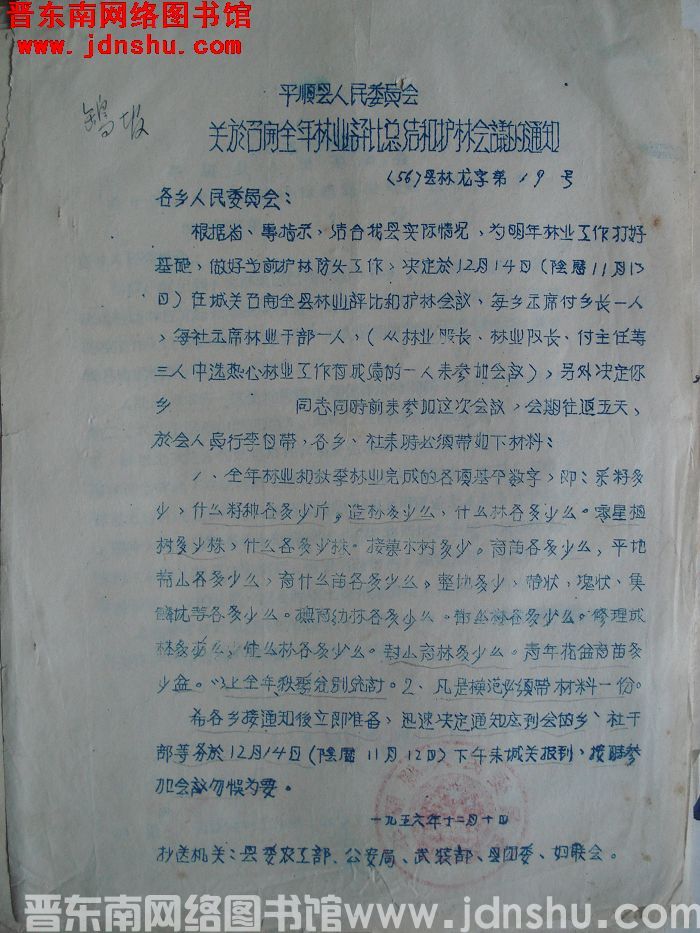 晋东南网络图书馆
www.jdnshu.com
平順县人民委員会
关於召開全年林业評比总结和护林会議的通知
(56)县林龙字第19号
各乡人民委員会：
根据省、專指示，结合我县实际情况，为明年林业工作打好
基础，做好当前护林防火工作，决定於12月14日(陰曆11月13
日)在城关召开全县林业評比和护林会议，每乡主席付乡长一人
，每社主席林业干部一人，(从林业股长、林业队长、付主任等
三人中选热心林业工作有成績的一人来参加会议)，另外决定你
乡 同志同時前来参加这次会议，会期往返五天，
於会人員行李自带，各乡、社来時必须带如下材料：
1、全年林业和秋季林业完成的各項基本数字，即：采籽多
少，什么籽种各多少斤。造林多少么，什么林各多少么。零星植
树多少株，什么各多少株。接菓木树多少。育苗各多少么，平地
荒山各多少么，育什么苗各多少么。整地多少，带状、塊状、集
鱗坑等各多少么。撫育幼林各多少么。什么林各多少么。修理成
林多少么，什么林各多少么。封山育林多少么。青年花盆育苗多
少盆。以上全年秋季分别统計。2、凡是模范必须带材料一份。
希各乡接通知後立即准备，迅速决定通知应到会的乡、社干
部等务於12月14日(陰曆11月12日)下午来城关报到，按時参
加会议勿悞为要。
一九五六年十二月十日
抄送机关：县委农工部、公安局、武装部、县团委、妇联会。
晋东南网络图书馆 www.jdnshu.com